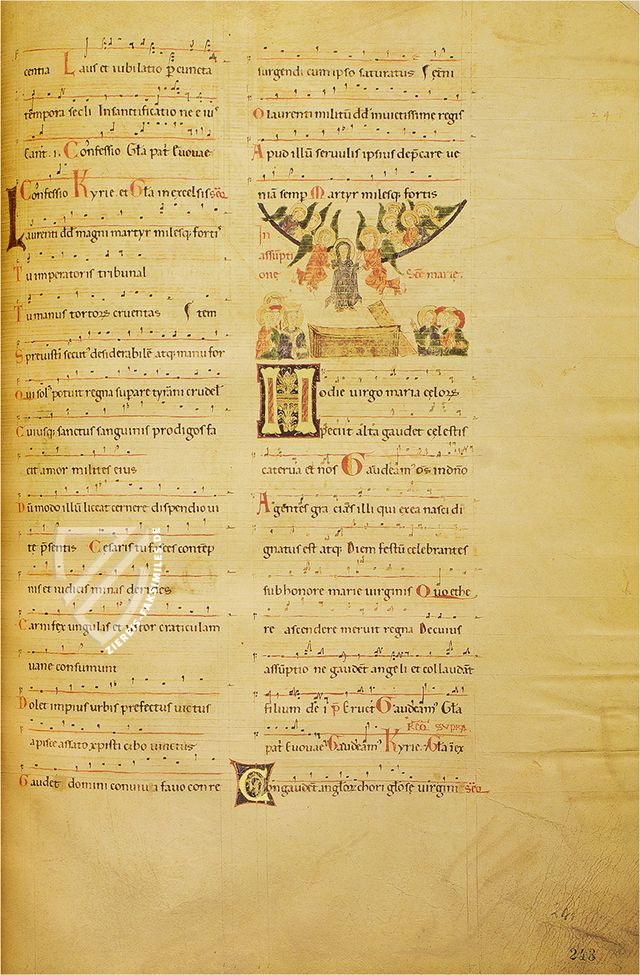 centia Laus et iubilatio p cuncta
tempora secli In sanctificatio ne eius
Cant. 1. Confessio Gła pat Euouae
Confessio Kyrie. et Gła in excelsis
Laurenti dđ magni martyr milesq; forti
Tu imperatoris tribunal
Tu manus tortorẽ cruentas Item
Sprevisti secut desiderabilẽ atq; manu for
Qui sol potuit regna supare tyrãni crudel
Cuiusq; sanctus sanguinis prodigos fa
cit amor milites eius
Dũmodo illũ liceat cernere dispendio ui
te p̃sentis Cesaris tu fasces contẽp
nis et iudicis minas derides
Carnifex ungulas et ustor craticulam
uane consumunt
Dolet impius urbis prefectus uictus
a pisce assato xp̃isti cibo uinctus
Gaudet domini conuiua fauo con re
surgendi cum ipso saturatus
O laurenti militũ dđ inuictissime regis
Apud illũ seruulis ipsius dep̃care ue
niã semp Martyr milesq; fortis
In
assũpti
one Sc̃e marie.
Hodie uirgo maria celos
petiit alta gaudet celestis
caterua et nos Gaudeam os in dño
Agentes gra cias illi qui ex ea nasci di
gnatus est atq; Diem festũ celebrantes
sub honore marie uirginis Quo ethe
re ascendere meruit regna De cuius
assũptio ne gaudẽt angeli et collaudãt
filium de i p̃ Eruct Gaudeam Gła
pat Euouae Gaudeam Kyrie. Gła i ex
Congaudẽt angloꝝ chori głose uirgini
ZIEREIS-FAKSIMILES.DE
243